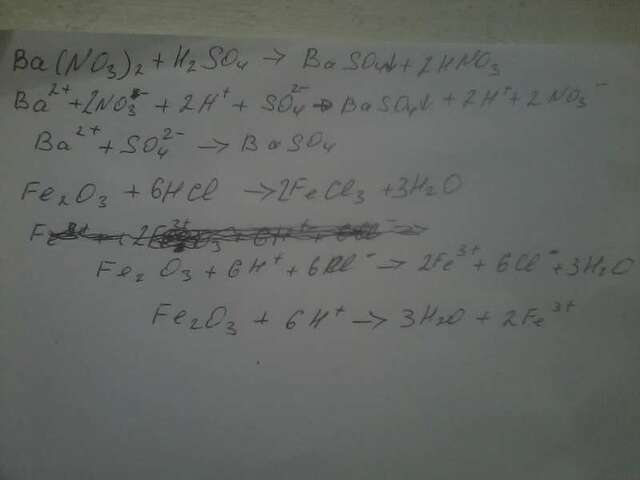 Ba(NO₃)₂ + H₂SO₄ → BaSO₄↓ + 2HNO₃
Ba²⁺ + 2NO₃⁻ + 2H⁺ + SO₄²⁻ → BaSO₄↓ + 2H⁺ + 2NO₃⁻
Ba²⁺ + SO₄²⁻ → BaSO₄
Fe₂O₃ + 6HCl → 2FeCl₃ + 3H₂O
Fe₂O₃ + 6H⁺ + 6Cl⁻ → 2Fe³⁺ + 6Cl⁻ + 3H₂O
Fe₂O₃ + 6H⁺ → 3H₂O + 2Fe³⁺